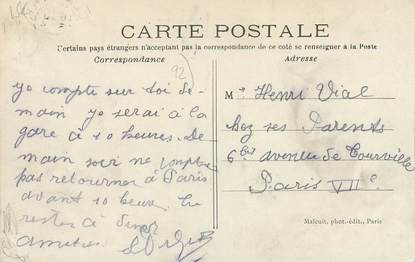 CARTE POSTALE
Certains pays étrangers n'acceptant pas la correspondance de ce coté se renseigner à la Poste
Correspondance
Adresse
92
je compte sur toi de-
main je serai à la
gare à 10 heures. De
main soir ne comptes
pas retourner à Paris
avant 10 heure. Tu
restes à diner
amities
Mr Henri Vial
chez ses Parents
6bis avenue de Tourville
Paris VIIe
Malcuit, phot.-édit., Paris